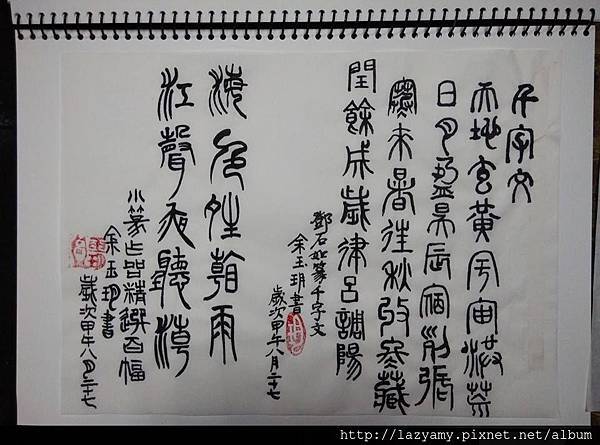 千字文
天地玄黃宇宙洪荒
日月盈昃辰宿列張
寒來暑往秋收冬藏
閏餘成歲律呂調陽
鄧石如篆千字文
余玉玥書
歲次甲午八月二十七
海色晴看雨
江聲夜聽潮
小篆 精選百幅
余玉玥書
歲次甲午八月二十七
http://lazyamy.pixnet.net/album